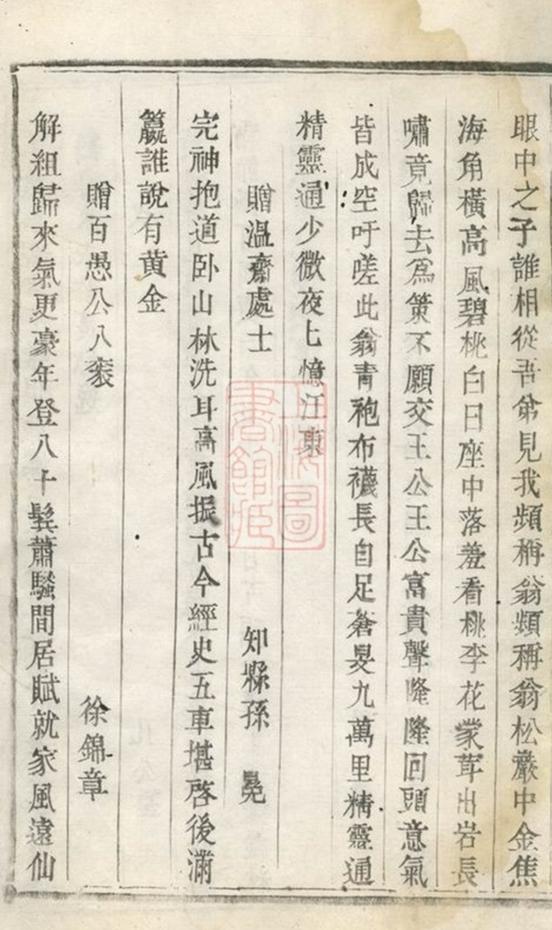 眼中之子誰相從吾弟見我頻稱翁頻稱翁松巖中金焦
海角橫高風碧桃白日座中落羞看桃李花蒙茸出岩長
嘯竟歸去爲策不願交王公王公富貴聲隆隆回頭意氣
皆成空吁嗟此翁青袍布襪長自足蒼旻九萬里精靈通
精靈通少微夜上憶江東
贈溫齋處士
知縣孫 晃
完神抱道卧山林洗耳高風振古今經史五車堪啓後滿
籝誰說有黃金
贈百愚公八袠
徐錦章
解組歸來氣更豪年登八十鬂蕭騷間居賦就家風遠仙
上海圖書館藏